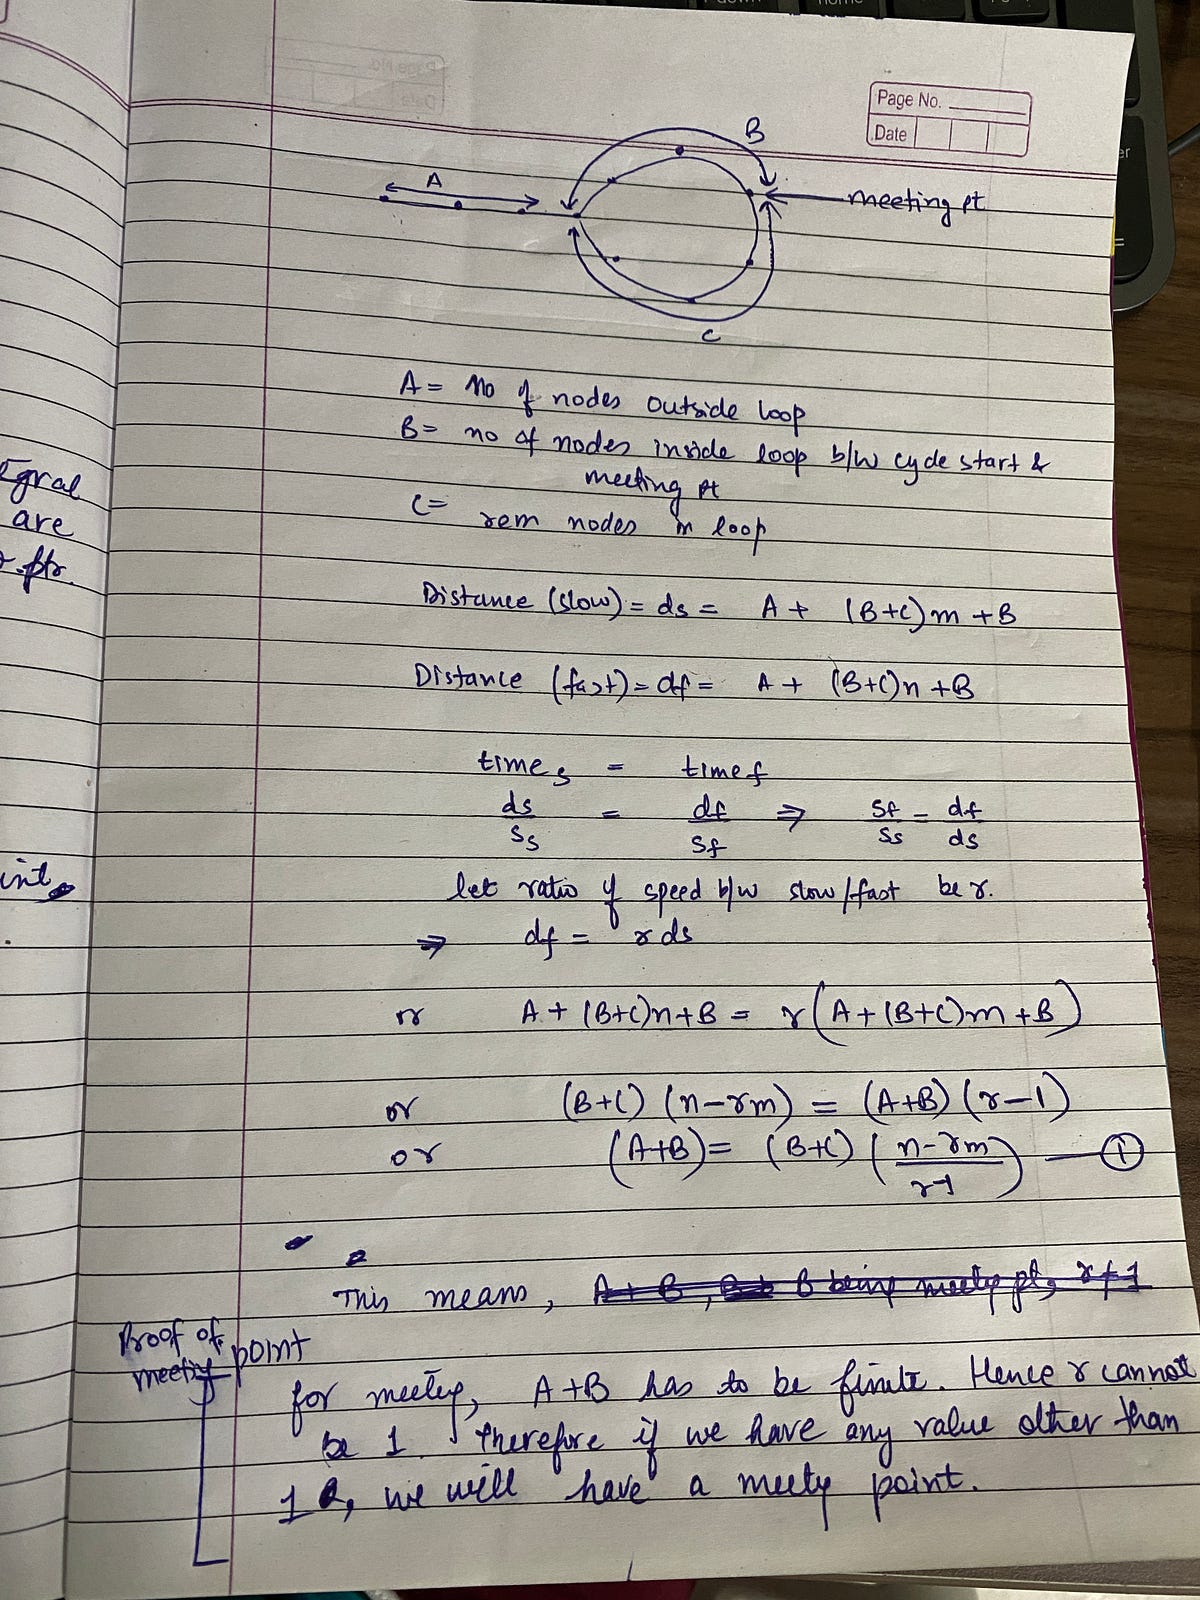 Page No.
Date
B
A
meeting pt
C
A = No of nodes outside loop
B = no of nodes inside loop b/w cycle start &
meeting pt
C = rem nodes in loop
Distance (slow) = ds = A + (B+C)m + B
Distance (fast) = df = A + (B+C)n + B
time s = time f
ds/Ss = df/Sf ⇒ Sf/Ss = df/ds
let ratio of speed b/w slow/fast be r.
⇒ df = r ds
or A + (B+C)n + B = r(A + (B+C)m + B)
or (B+C) (n-rm) = (A+B) (r-1)
or (A+B) = (B+C) (n-rm/r-1) — ①
This means, A+B, B being meety pt, r≠1
Proof of
meeting point
for meetig, A+B has to be finite. Hence r cannot
be 1. Therefore if we have any value other than
1, we will have a meety point.
egral
are
ptr.
int